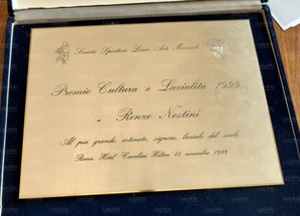 Società Sportiva Lazio Asta Monicelli
Premio Cultura e Lazialità 1999
a Renzo Nostini
Al più grande, ostinato, signore, laziale del secolo
Roma, Hotel Cavalieri Hilton 15 novembre 1999